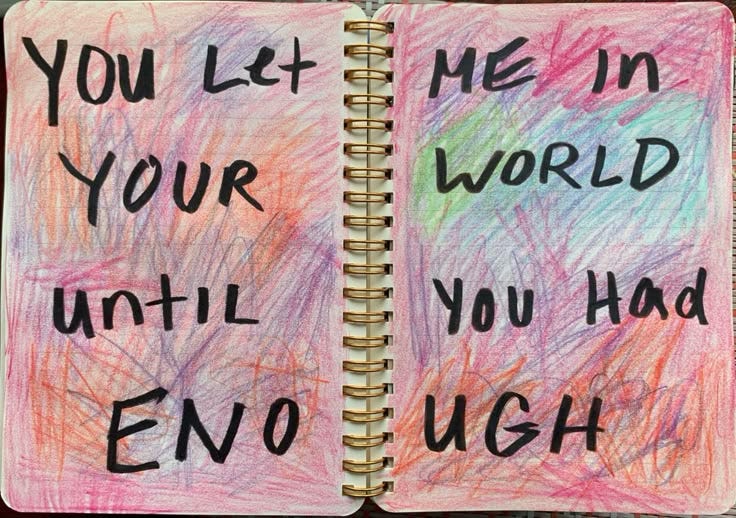 YOU Let ME in
YOUR WORLD
until YOU Had
ENO UGH